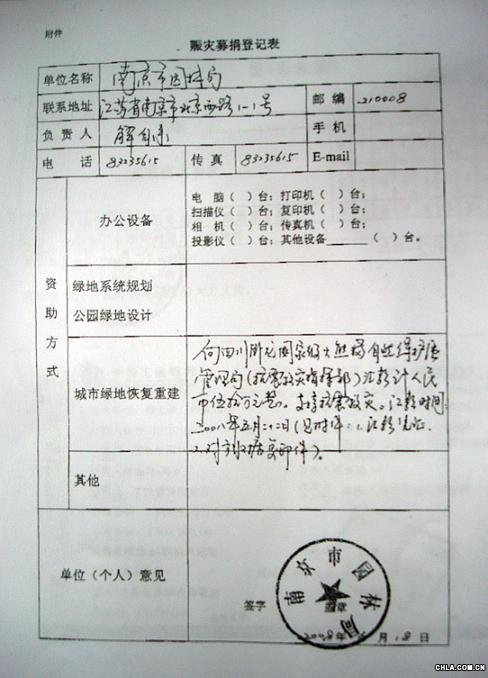 附件
赈灾募捐登记表
单位名称 南京市园林局
联系地址 江苏省南京市北京西路1-1号 邮编 210008
负责人 解 手机
电话 83235615 传真 83235615 E-mail
资助方式
办公设备
电 脑（ ）台；打印机（ ）台；
扫描仪（ ）台；复印机（ ）台；
相 机（ ）台；传真机（ ）台；
投影仪（ ）台；其他设备______（ ）台。
绿地系统规划
公园绿地设计
城市绿地恢复重建
向四川卧龙国家级大熊猫自然保护区
管理局（抗震救灾指挥部）汇款计人民
币伍拾万元整。支持抗震救灾。汇款时间：
2008年五月二十二日（见附件：1.汇款凭证
2.对方收据复印件）。
其他
单位（个人）意见
签字 盖章
南京市园林局
2008年 月18日
CHLA.COM.CN